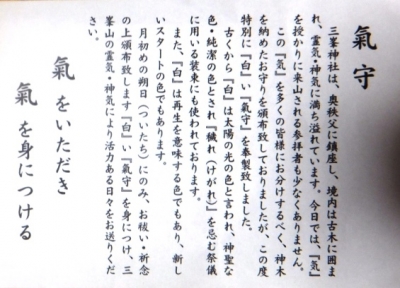 氣守
三峯神社は、奥秩父に鎮座し、境内は古木に囲ま
れ、霊気・神気に満ち溢れています。今日では、『気』
を授かりに来山される参拝者も少なくありません。
この『気』を多くの皆様にお分けするべく、神木
を納めたお守りを頒布しておりましたが、この度
特別に『白』い『氣守』を奉製致しました。
古くから『白』は太陽の光の色と言われ、神聖な
色・純潔の色とされ『穢れ（けがれ）』を忌む祭儀
に用いる装束にも使われております。
また、『白』は再生を意味する色でもあり、新し
いスタートの色でもあります。
月初めの朔日（ついたち）にのみ、お祓い・祈念
の上頒布致します『白』い『氣守』を身につけ、三
峯山の霊気・神気により活力ある日々をお送りくだ
さい。
氣をいただき
氣を身につける